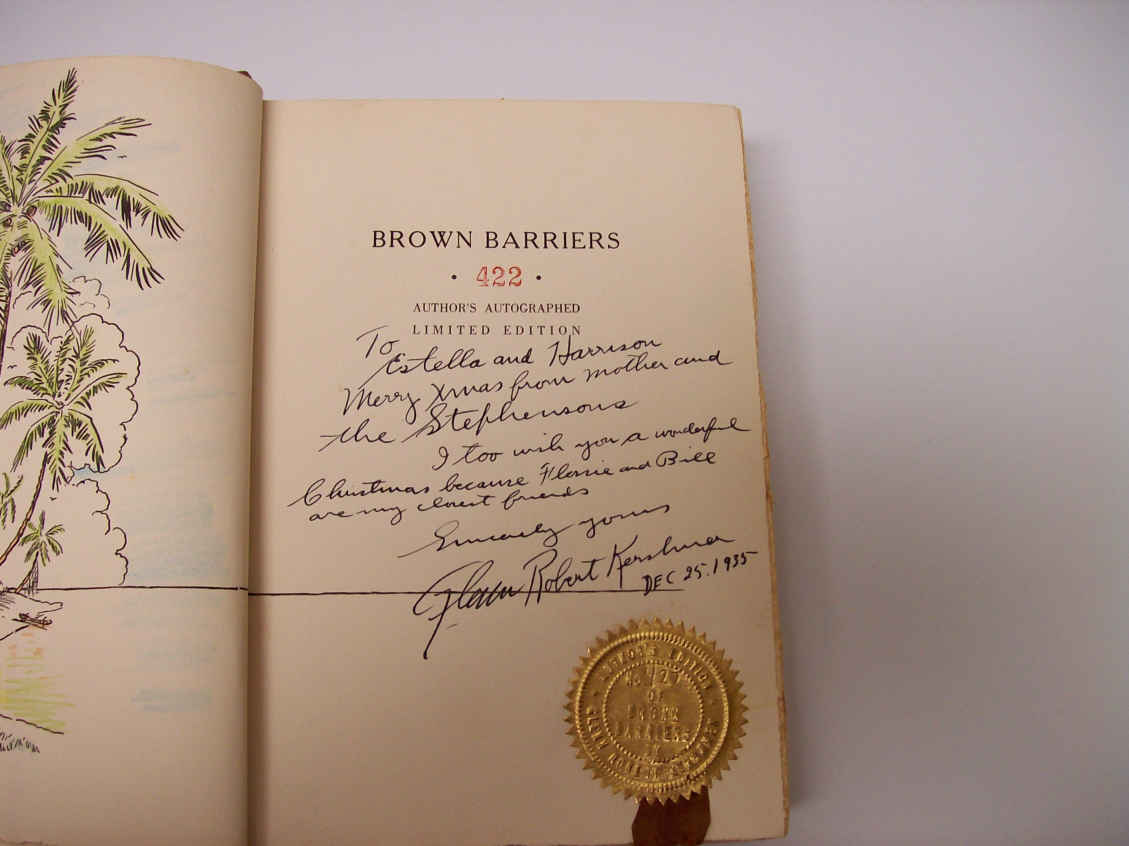 BROWN BARRIERS
• 422 •
AUTHOR'S AUTOGRAPHED
LIMITED EDITION
To
Estella and Harrison
Merry Xmas from mother and
the Stephensons
I too wish you a wonderful
Christmas because Flossie and Bill
are my closest friends
Sincerely yours
Glenn Robert Kershner
DEC 25. 1935
AUTHOR'S EDITION
OF
BROWN
BARRIERS
GLENN ROBERT KERSHNER